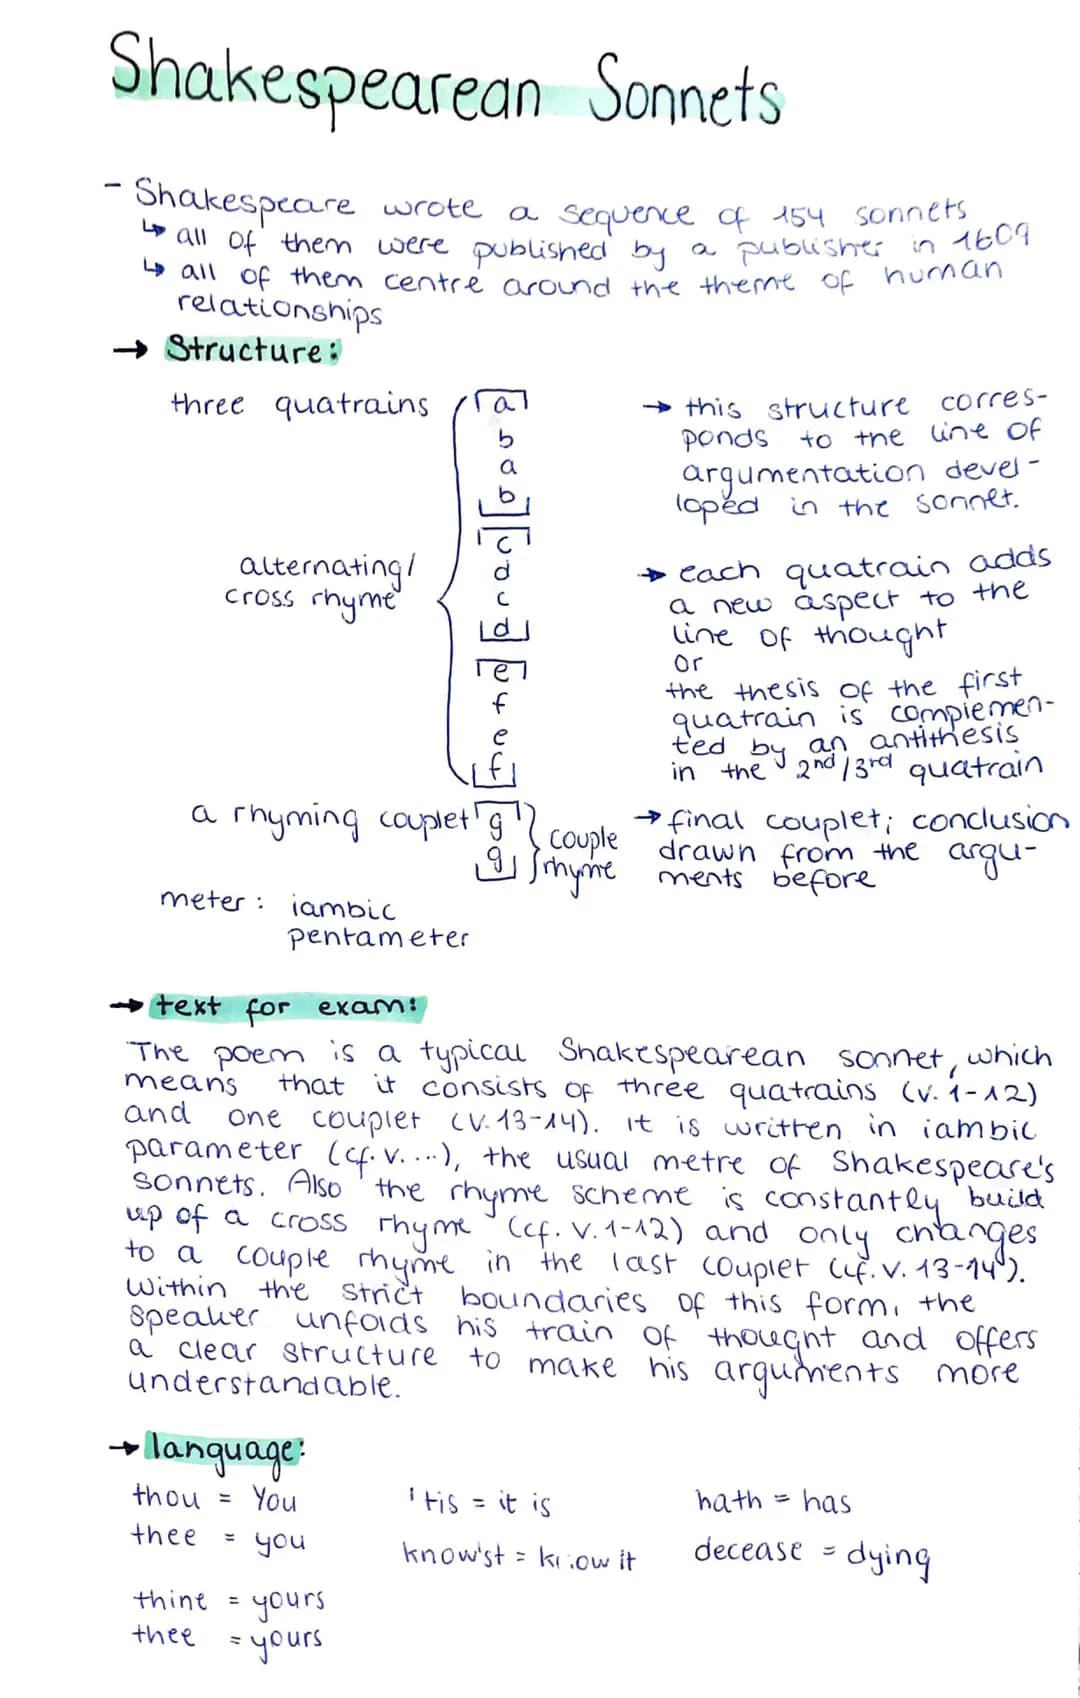 Shakespearean Sonnets
- Shakespeare wrote a sequence of 154 sonnets
↳ all of them were published by a publisher in 1609
↳ all of them centre around the theme of human
relationships
→ Structure:
three quatrains
a
b
a
b
alternating/
cross rhyme
c
d
c
d
e
f
e
f
→ this structure corres-
ponds to the line of
argumentation devel-
loped in the sonnet.
→ each quatrain adds
a new aspect to the
line of thought
or
the thesis of the first
quatrain is complemen-
ted by an antithesis
in the 2nd/3rd quatrain
a rhyming couplet
g
g
couple
rhyme
→ final couplet; conclusion
drawn from the argu-
ments before
meter: iambic
pentameter
→ text for exam:
The poem is a typical Shakespearean sonnet, which
means that it consists of three quatrains (v. 1-12)
and one couplet (v. 13-14). it is written in iambic
parameter (cf. v. ...), the usual metre of Shakespeare's
sonnets. Also the rhyme scheme is constantly build
up of a cross rhyme (cf. v. 1-12) and only changes
to a couple rhyme in the last couplet (cf. v. 13-14).
Within the strict boundaries of this form, the
speaker unfolds his train of thought and offers
a clear structure to make his arguments more
understandable.
→ language:
thou = You
'tis = it is
hath = has
thee = you
know'st = know it
decease = dying
thine = yours
thee = yours